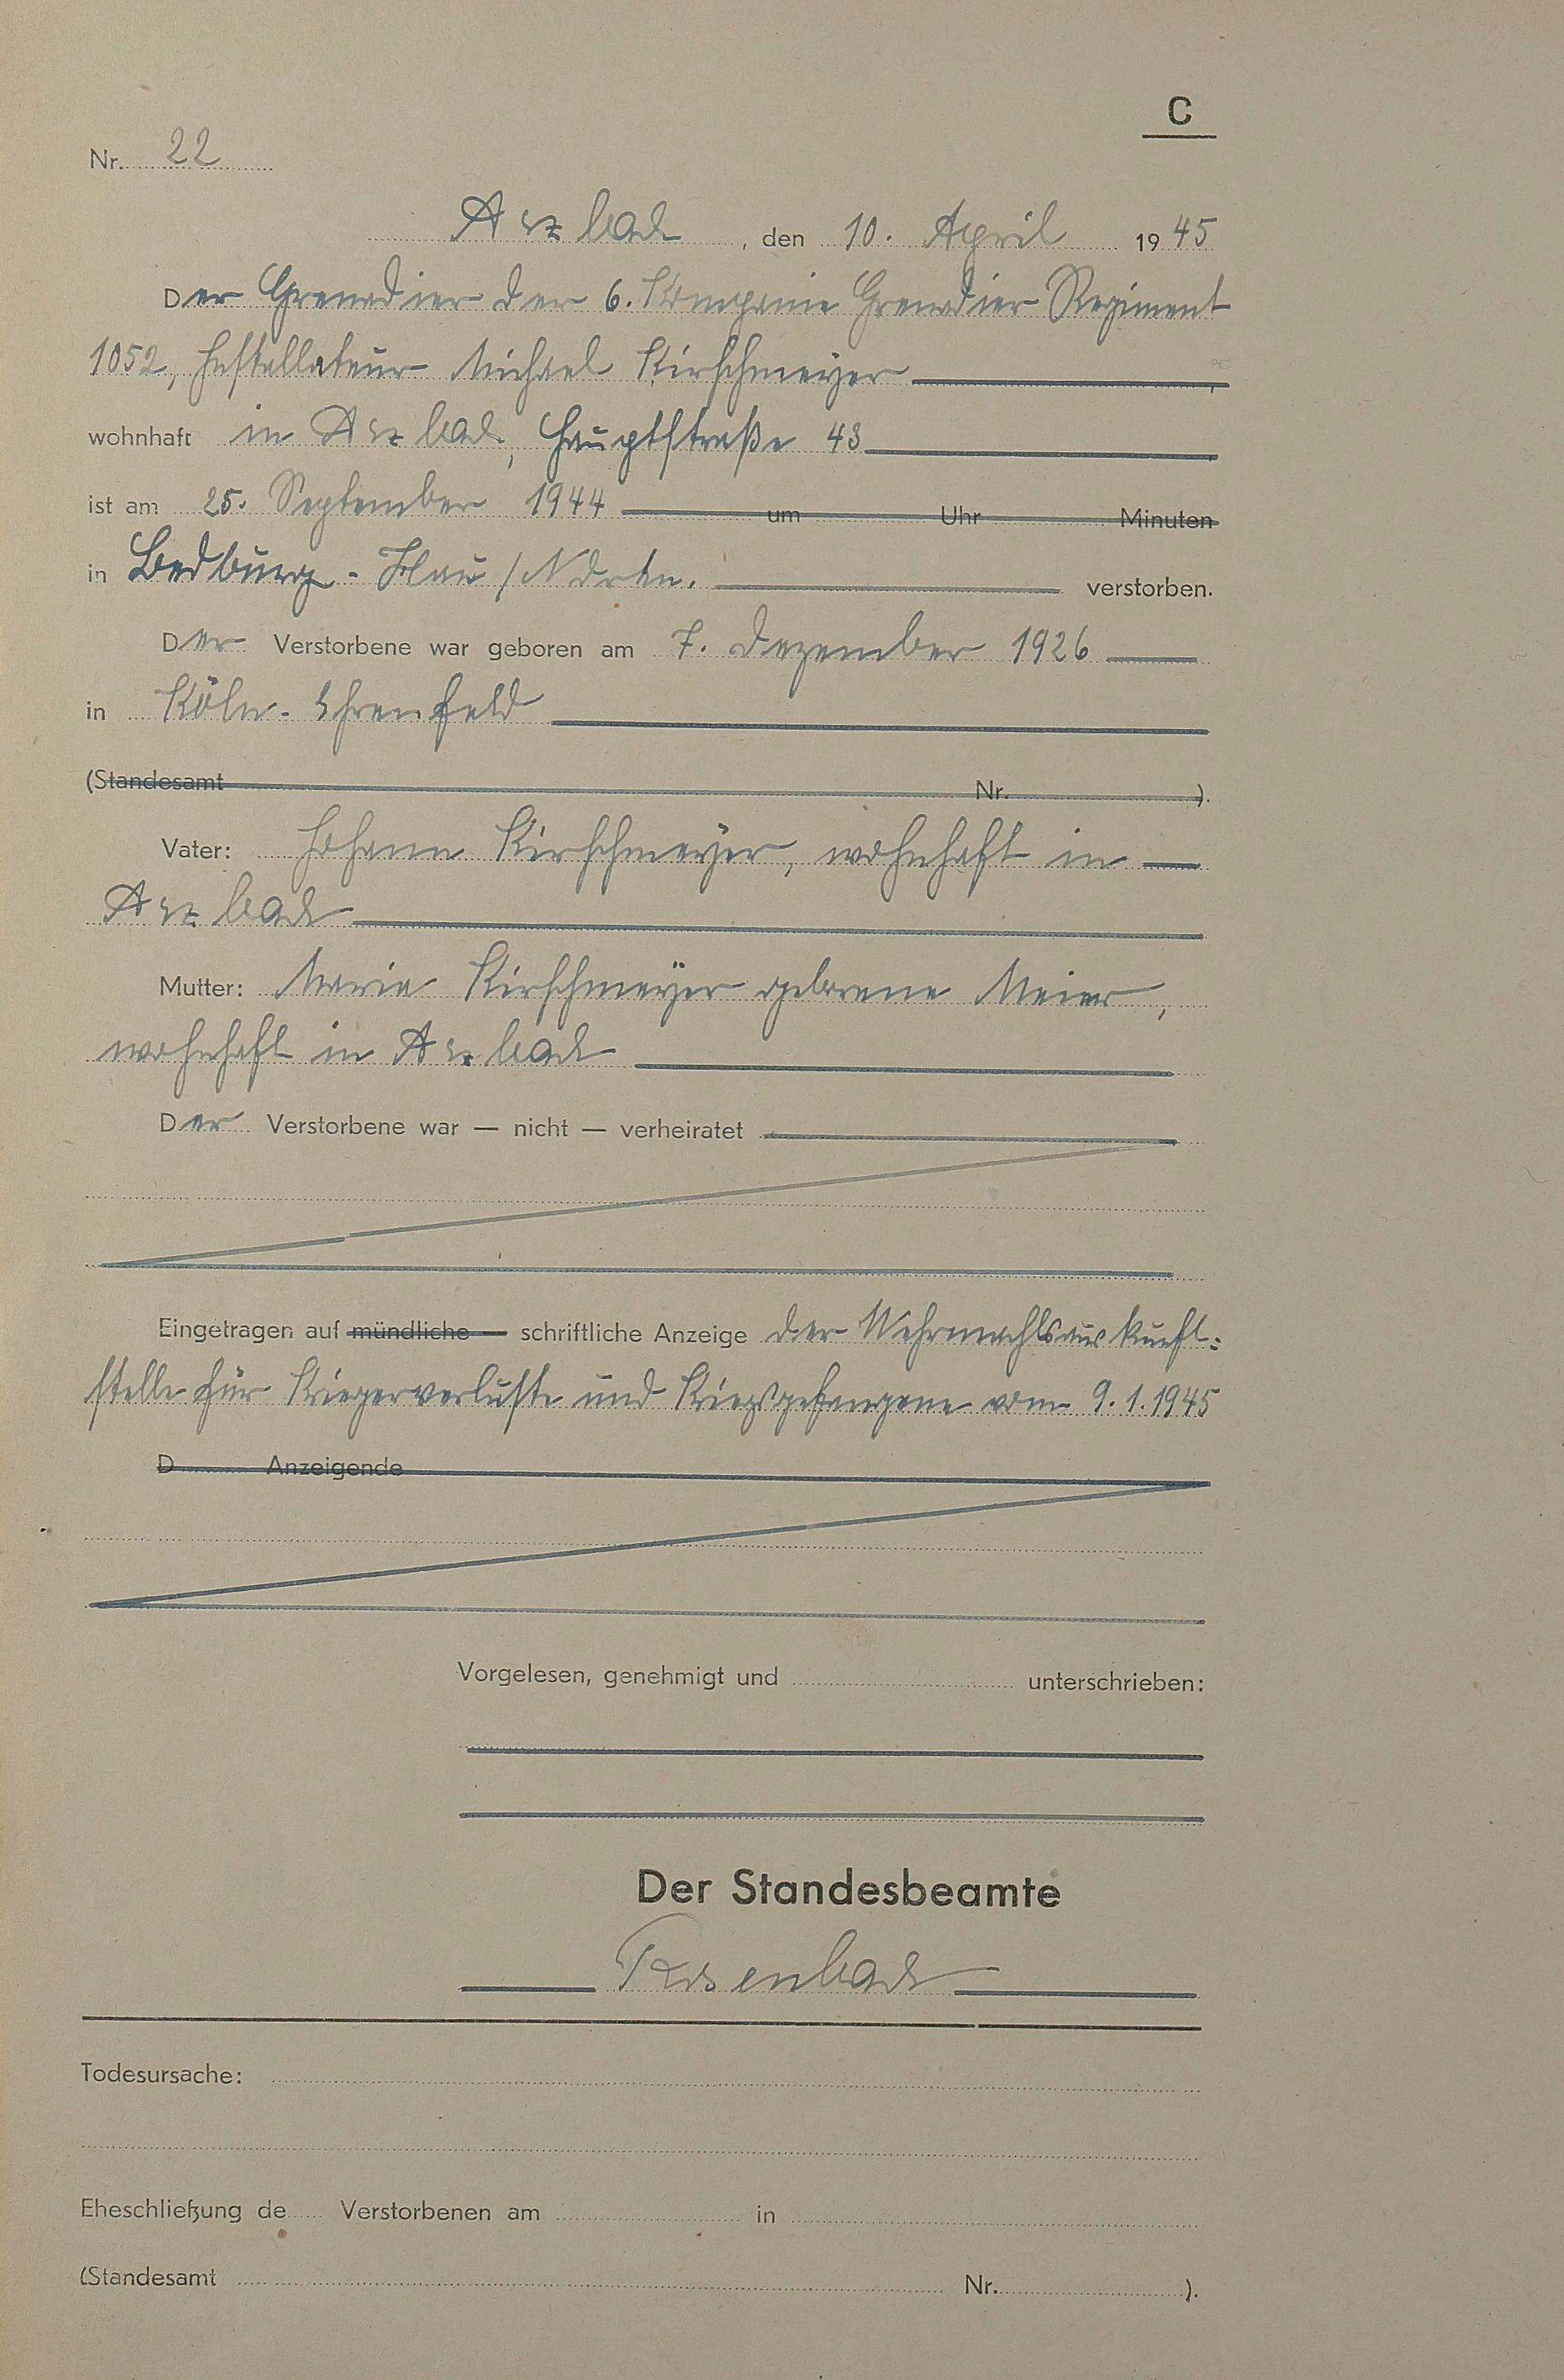 C
Nr. 22
Arzbach, den 10. April 1945
Der Grenadier der 6. Kompanie Grenadier Regiment
1052, Installateur Michael Kirschmeyer
wohnhaft in Arzbach, Hauptstraße 43
ist am 25. September 1944 um Uhr Minuten
in Bedburg-Hau /Ndrhn. verstorben.
Der Verstorbene war geboren am 7. Dezember 1926
in Köln-Ehrenfeld
(Standesamt Nr. ).
Vater: Johann Kirschmeyer, wohnhaft in
Arzbach
Mutter: Maria Kirschmeyer geborene Meier,
wohnhaft in Arzbach
Der Verstorbene war — nicht — verheiratet
Eingetragen auf mündliche — schriftliche Anzeige der Wehrmachtsauskunft-
stelle für Kriegerverluste und Kriegsgefangene vom 9.1.1945
D Anzeigende
Vorgelesen, genehmigt und unterschrieben:
Der Standesbeamte
Rosenbach
Todesursache:
Eheschließung de Verstorbenen am in
(Standesamt Nr. ).